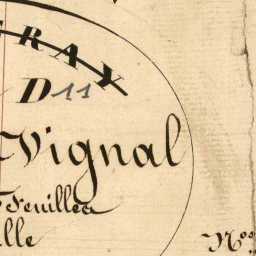 RAY
D 11
Vignal
Feuilles
lle
Nos